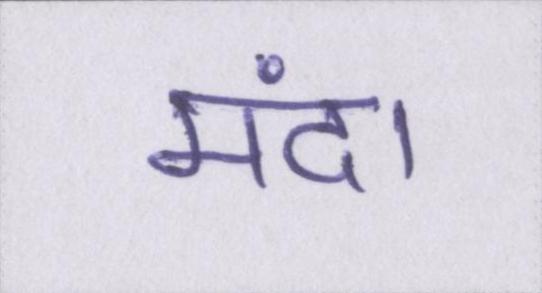 मंदा